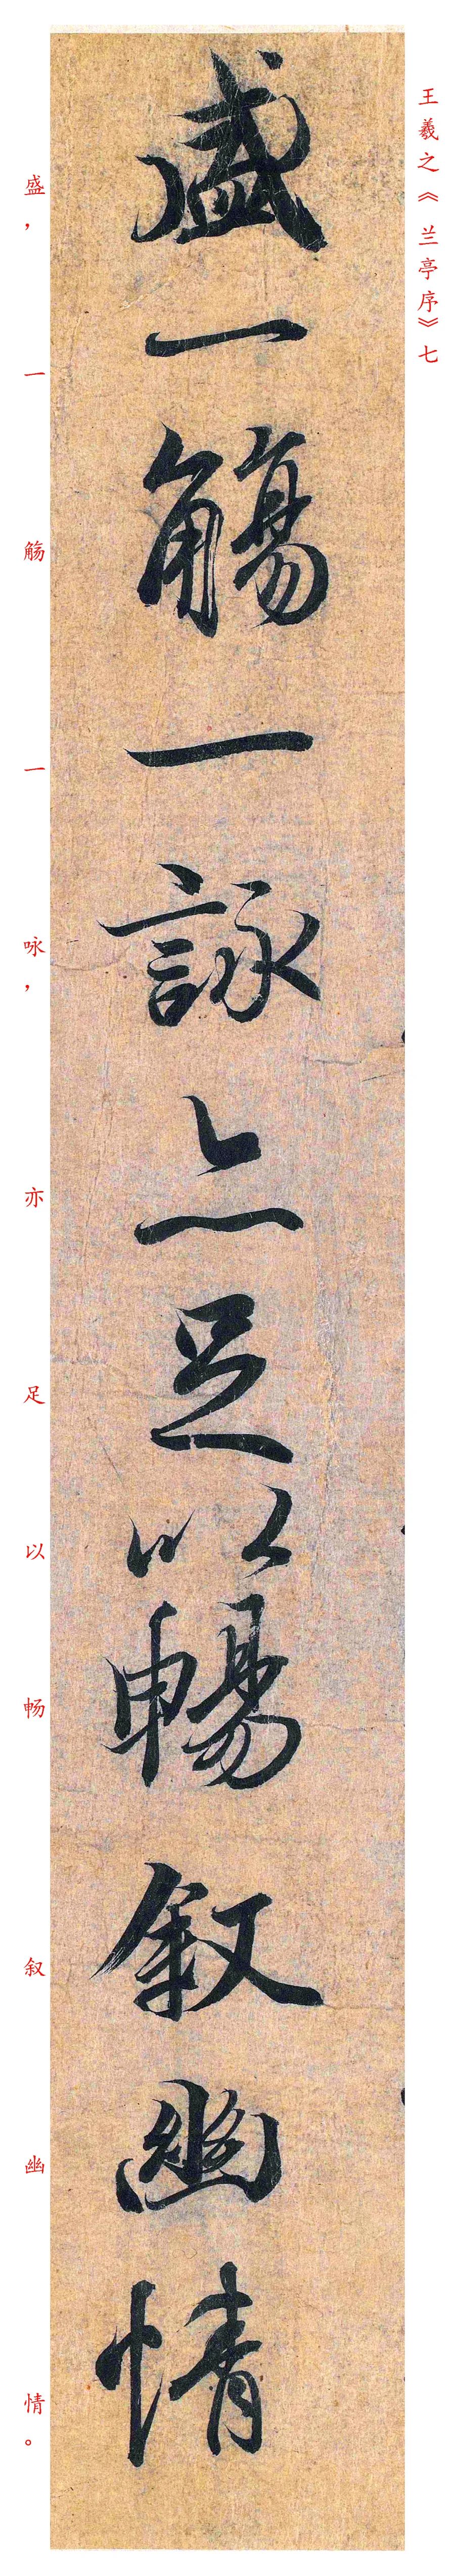 王羲之《兰亭序》七
盛一觴一詠亦足以暢叙幽情
盛，一觞一咏，亦足以畅叙幽情。